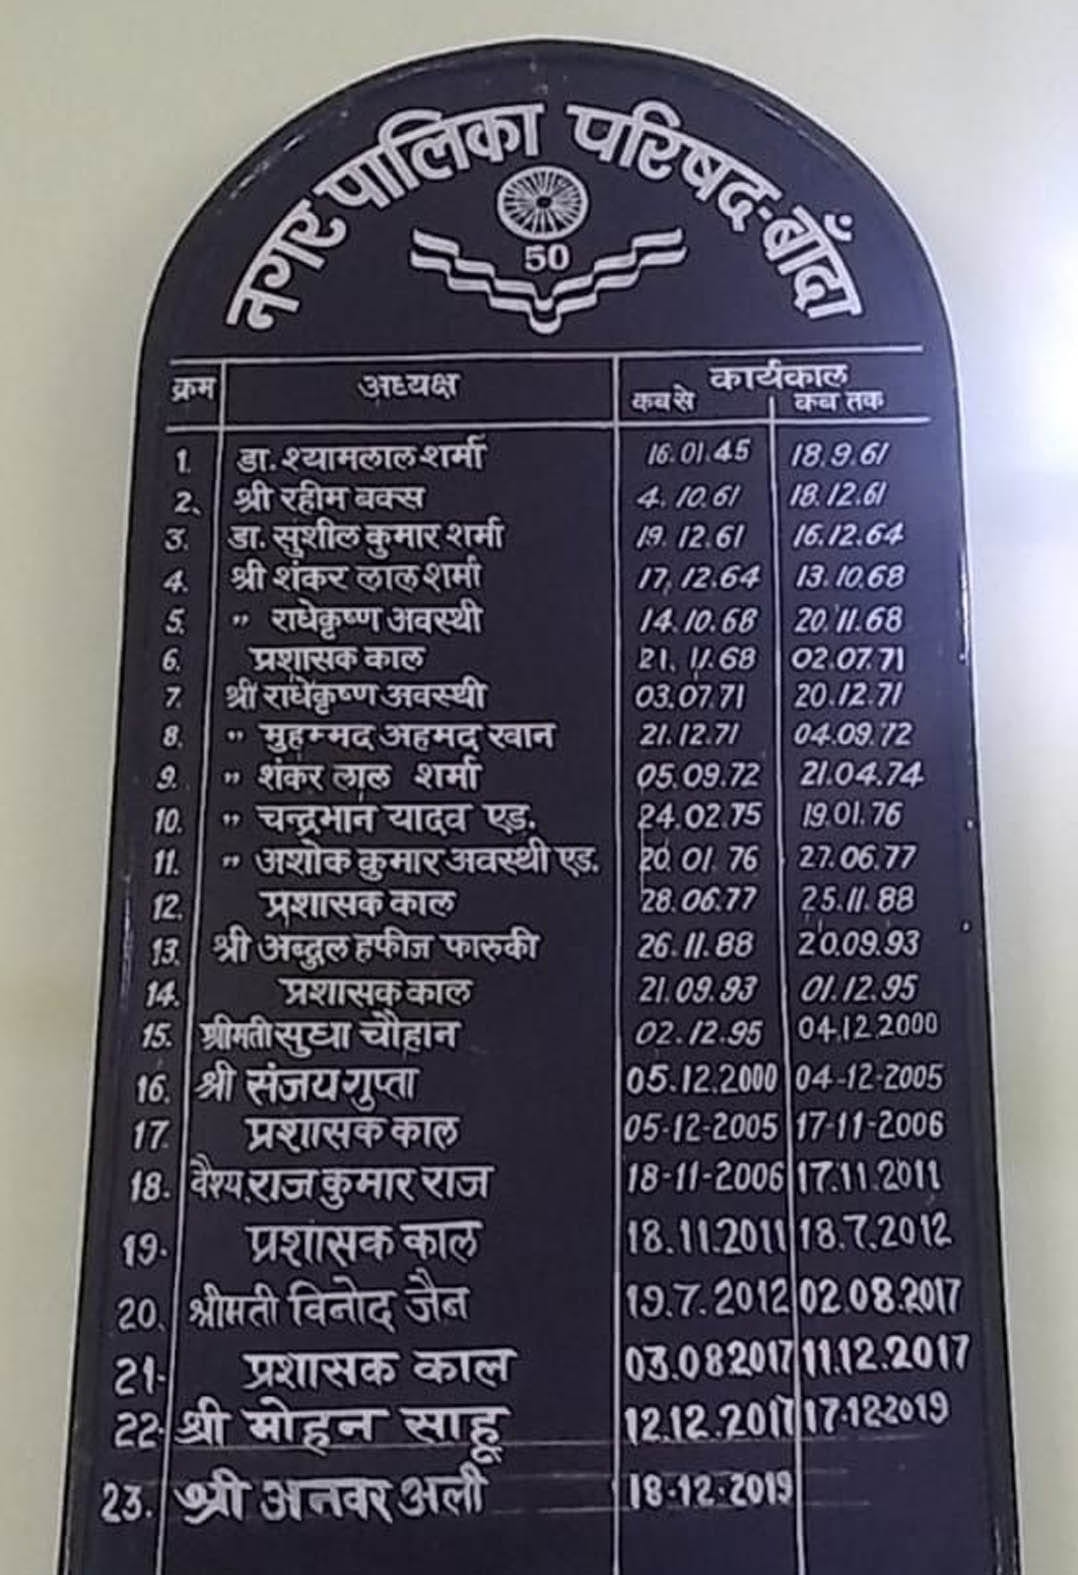 नगर पालिका परिषद-बाँदा
50
क्रम अध्यक्ष कार्यकाल
कब से कब तक
1. डा. श्यामलाल शर्मा 16.01.45 18.9.61
2. श्री रहीम बक्स 4.10.61 18.12.61
3. डा. सुशील कुमार शर्मा 19.12.61 16.12.64
4. श्री शंकर लाल शर्मा 17.12.64 13.10.68
5. " राधेकृष्ण अवस्थी 14.10.68 20.11.68
6. प्रशासक काल 21.11.68 02.07.71
7. श्री राधेकृष्ण अवस्थी 03.07.71 20.12.71
8. " मुहम्मद अहमद खान 21.12.71 04.09.72
9. " शंकर लाल शर्मा 05.09.72 21.04.74
10. " चन्द्रभान यादव एड. 24.02.75 19.01.76
11. " अशोक कुमार अवस्थी एड. 20.01.76 27.06.77
12. प्रशासक काल 28.06.77 25.11.88
13. श्री अब्दुल हफीज फारुकी 26.11.88 20.09.93
14. प्रशासक काल 21.09.93 01.12.95
15. श्रीमती सुधा चौहान 02.12.95 04.12.2000
16. श्री संजय गुप्ता 05.12.2000 04-12-2005
17. प्रशासक काल 05-12-2005 17-11-2006
18. वैश्य राज कुमार राज 18-11-2006 17.11.2011
19. प्रशासक काल 18.11.2011 18.7.2012
20. श्रीमती विनोद जैन 19.7.2012 02.08.2017
21- प्रशासक काल 03.08.2017 11.12.2017
22- श्री मोहन साहू 12.12.2017 17-12-2019
23. श्री अनवर अली 18-12-2019